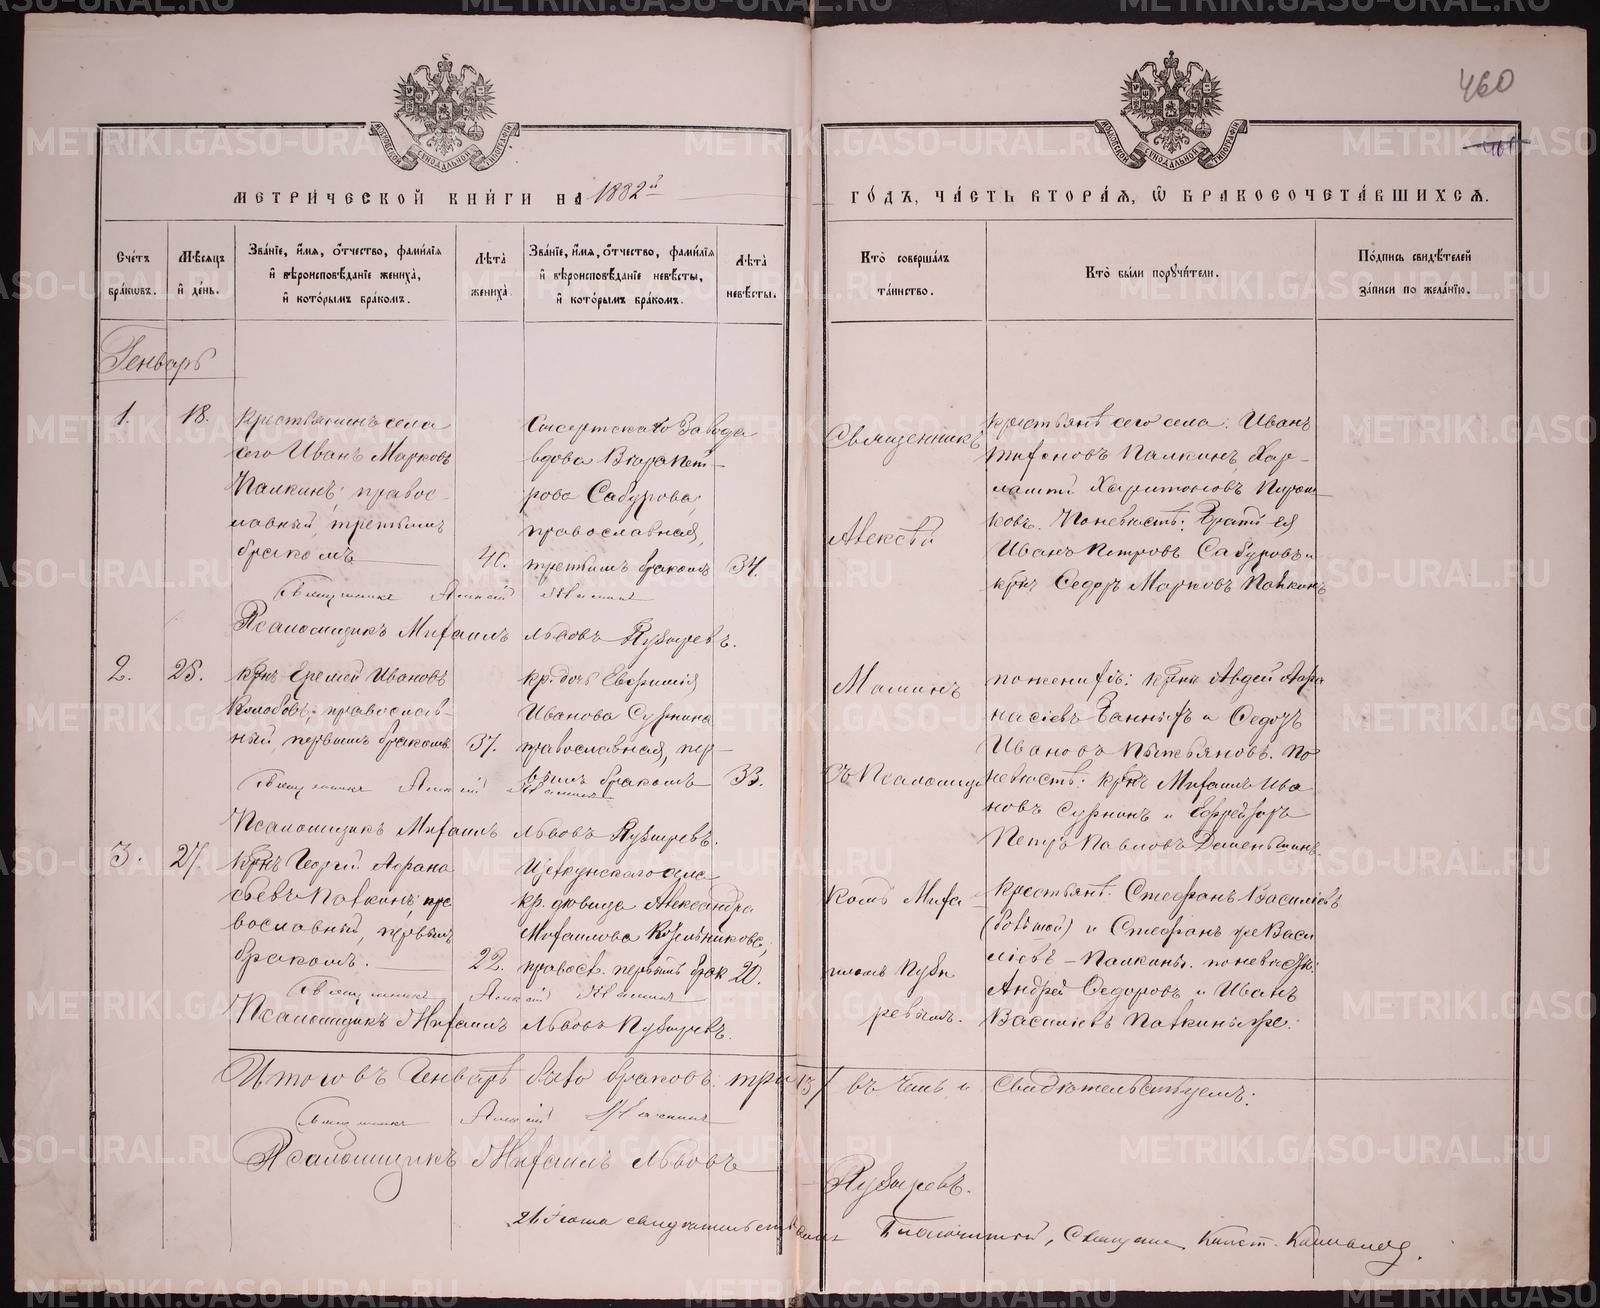 460
461
МОСКОВСКОЙ СѴНОДАЛЬНОЙ ТИПОГРАФІИ
МОСКОВСКОЙ СѴНОДАЛЬНОЙ ТИПОГРАФІИ
МЕТРИ́ЧЕСКОЙ КНИ́ГИ НА 1882й
ГО́ДЪ, ЧА́СТЬ ВТОРА́Я, Ѿ БРАКОСОЧЕТА́ВШИХСЯ.
Сче́тъ бра́кѡвъ.
Мѣ́сяцъ и҆ де́нь.
Зва́нїе, и҆́мя, ѻ҆́тчество, фами́лїя и҆ вѣроисповѣ́данїе жениха̀, и҆ кото́рымъ бра́комъ.
Лѣ́та жениха̀.
Зва́нїе, и҆́мя, ѻ҆́тчество, фами́лїя и҆ вѣроисповѣ́данїе невѣ́сты, и҆ кото́рымъ бра́комъ.
Лѣ́та невѣ́сты.
Кто̀ соверша́лъ та́инство.
Кто̀ бы́ли порꙋчи́тели.
По́дпись свидѣ́телей за́писи по жела́нїю.
Генварь
1.
18.
Крестьянинъ села
сего Иванъ Марковъ
Палкинъ, правос-
лавный, третьимъ
бракомъ
40.
Сысертскаго Завода
вдова Вѣра Пет-
рова Сабурова,
православная,
третьимъ бракомъ
34.
Священникъ
Алексѣй
крестьяне сего села: Иванъ
Тифоновъ Палкинъ, Хар-
лампій Харитоновъ
ковъ. По невѣстѣ: Братъ ея
Иванъ Петровъ Сабуровъ и
крнъ Ѳедоръ Марковъ Палкинъ
Священникъ Алексѣй Маминъ
Псаломщикъ Михаилъ Львовъ Пузыревъ.
2.
25.
крнъ Еремей Ивановъ
Колобовъ, православ-
ный, первымъ бракомъ
37.
кр. дочь Евфимія
Иванова Сурнина
православная, пер-
вымъ бракомъ
33.
Маминъ
съ Псаломщи
по женихѣ: крнъ Авдей Афа
насіевъ Банныхъ и Ѳедоръ
Ивановъ По
невѣстѣ: крнъ Михаилъ Ива
новъ Сурнинъ и Ефрейторъ
Петръ Павловъ Деменьшинъ
Священникъ Алексѣй Маминъ
Псаломщикъ Михаилъ Львовъ Пузыревъ.
3.
27.
Крнъ Георгій Афана
сьевъ Палкинъ, пра
вославный, первымъ
бракомъ.
22.
Щелкунскаго села
кр. дѣвица Александра
Михаилова Козельникова,
правосл. первымъ брак
20.
комъ Миха-
иломъ Пузы
ревымъ.
Крестьяне: Стефанъ Василіевъ
(большой) и Стефанъ же Васи
ліевъ – Палкины. по невѣстѣ:
Андрей Ѳедоровъ и Иванъ
Василіевъ Палкины же.
Священникъ Алексѣй Маминъ
Псаломщикъ Михаилъ Львовъ Пузыревъ.
Итого въ Генварѣ было браковъ: три /3/ въ чемъ и свидѣтельствуемъ:
Священникъ Алексѣй Маминъ
Псаломщикъ Михаилъ Львовъ Пузыревъ.
21 Іюня свидѣтельствовалъ Благочинный, Священ.
METRIKI.GASO-URAL.RU